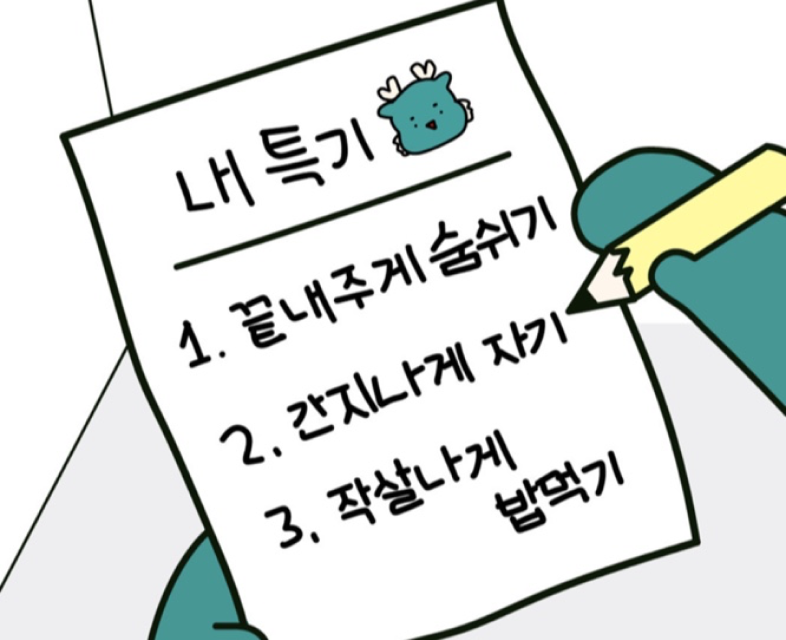 내 특기
1. 끝내주게 숨쉬기
2. 간지나게 자기
3. 작살나게
밥먹기